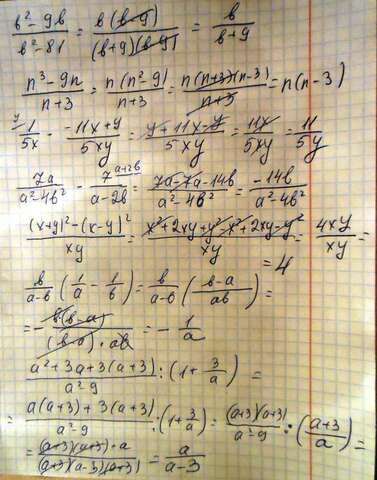 в² - 9в / в² - 81 = в(в - 9) / (в+9)(в-9) = в / в+9
n³ - 9n / n+3 = n(n² - 9) / n+3 = n(n+3)(n-3) / n+3 = n(n-3)
у 1 / 5x - -11x+y / 5xy = y+11x-y / 5xy = 11x / 5xy = 11 / 5y
7a / a²-4в² - 7 a+2в / a-2в = 7a-7a-14в / a²-4в² = -14в / a²-4в²
(x+y)² - (x-y)² / xy = x²+2xy+y²-x²+2xy-y² / xy = 4xy / xy =
= 4
в / a-в (1/a - 1/в) = в / a-в (в-a / aв) =
= - в(в-a) / (в-a)·aв = - 1/a
a²+3a+3(a+3) / a²-9 : (1+ 3/a) =
= a(a+3)+3(a+3) / a²-9 : (1+ 3/a) = (a+3)(a+3) / a²-9 : (a+3 / a) =
= (a+3)(a+3)·a / (a+3)(a-3)(a+3) = a / a-3